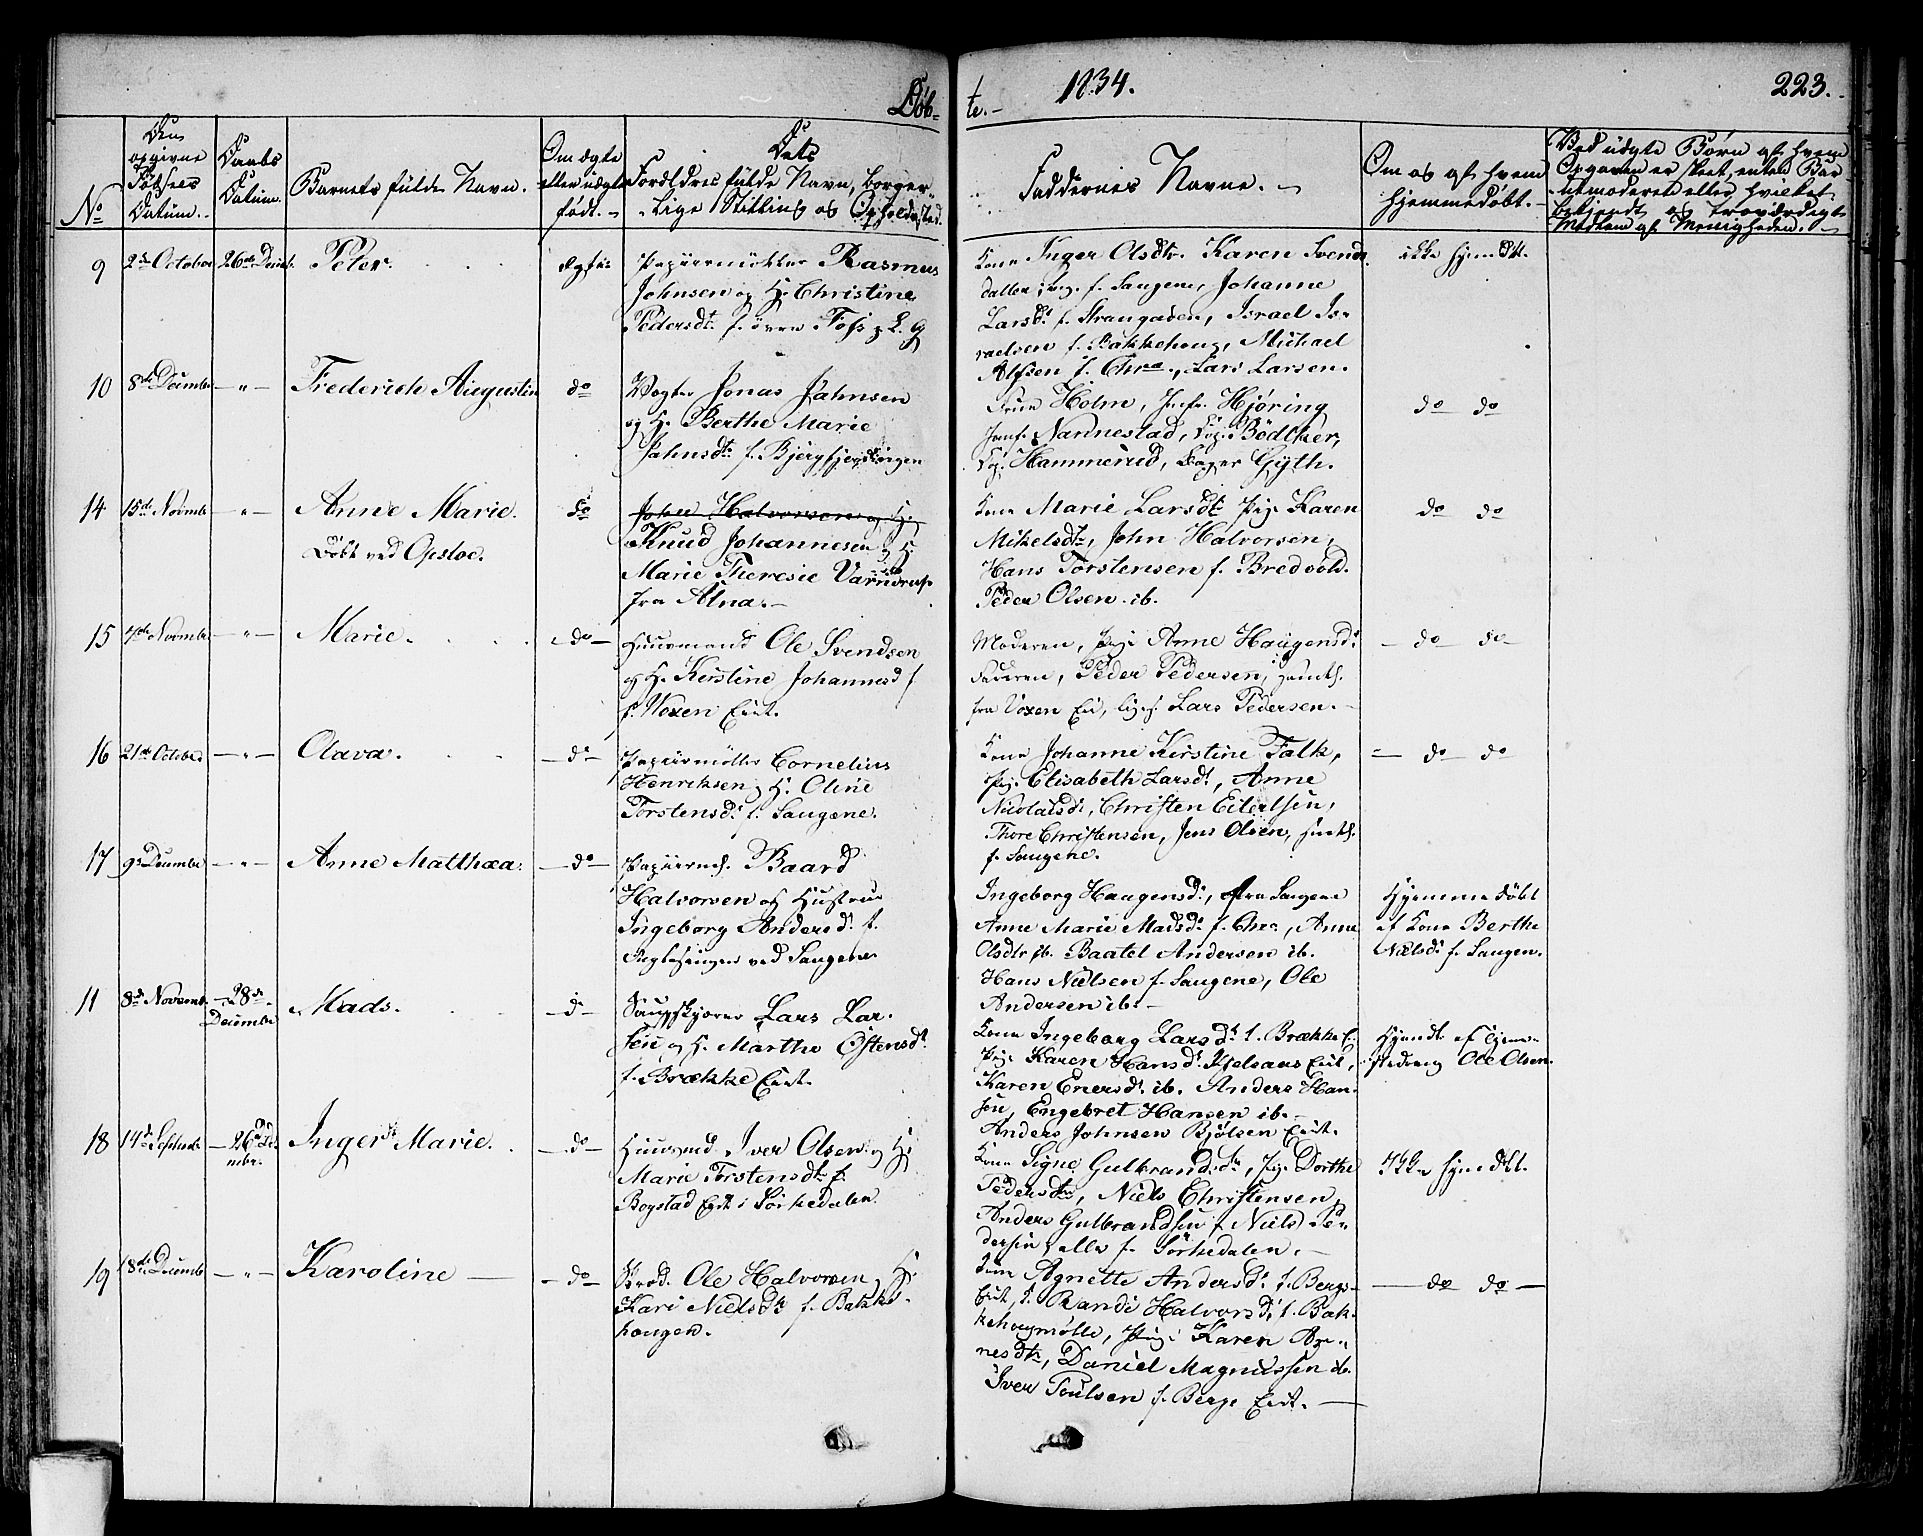 Døb-
te.-
1834.
223.
No
Den opgivne Fødsels Datum.
Daabs Datum.
Barnets fulde Navn.
Om ægte eller uægte født.
Dets Forældres fulde Navn, borger-
lige Stilling og Opholdssted.
Faddernes Navne.
Om og af hvem
hjemmedøbt.
Ved uægte Børn af hvem
Opgaven er skeet, enten Bar-
9 2de October 26de Decbr. Peter. ægte
Papiirmøller Rasmus
Johnsen og H. Christine
Pedersdt. f. øvre Foss
Kone Inger Olsdtr. Karen Svends
datter, f. Saugene, Johanne
Larsdt. f. Strangaden, Israel Is-
raelsen f. Bakkehoug, Michael
Alfsen f. Chra., Lars Larsen.
ikke hjemdbt.
10 8de Decembr -"- Frederich Augustin do
Jonas Jahnsen
og H. Berthe Marie
Jahnsdtr f.
Frue Holm, Jomf. Hjøring
Jomf. Nannestad, Bødtker,
Hammerud, Gyth.
do do
14 15de Novembr -"- Anne Marie.
Døbt ved Opsloe.
do
John Halvorsen og H.
Knud Johannesen og H.
Marie Theresie
fra Alna.-
Kone Marie Larsdt. Pige Karen
Mikelsdtr, John Halvorsen,
Hans Torstensen f. Bredvold.
Peder Olsen ib.
do do
15 Novembr -"- Marie. -do-
Huusmand Ole Svendsen
og H. Kirstine Johannesd
f. Voxen Eiet.
Moderen, Pige Anne Haugensdt.
Faderen, Peder Pedersen,
fra Voxen Eie, Lars Pedersen.-
- do - do -
16 21de October -"- Olava. -do-
Papiirmøller Cornelius
Henriksen og H. Oline
Torstensdt. f. Saugene.
Kone Johanne Kirstine Falk,
Pige Elisabeth Larsdt, Anne
Nicolaisdt, Christen Eilertsen,
Thore Christensen, Jens Olsen,
f. Saugene.
- do do
17 9de Decembr -"- Anne Mathæa. -do-
Baard
Halvorsen og Hustrue
Ingeborg Andersdt. f.
ved Saugene
Ingeborg Haugensdt., fra Saugene
Anne Marie Madsdt. f. Chra, Anne
Olsdtr ib. Andersen ib.
Hans Nielsen f. Saugene, Ole
Andersen ib.-
Hjemmedøbt
af Kone Berthe
Nielsdt f. Saugen.
11 8de Novemb. -28de-
Decembr
Mads. -do-
Saugskjærer Lars Lar-
sen og H. Marthe Østensdt.
f. Brække Eiet.
Kone Ingeborg Larsdt. f. Brække E.
Pige Karen Hansdt. Eiet,
Karen Enersdt. ib. Anders Han-
sen, Engebret Hansen ib.-
Anders Johnsen Bjølsen Eiet.
Hjemdt. af
Ole Olsen.
18 14de Septembr -26de De-
cmbr.
Inger Marie. -do-
Huusmd. Iver Olsen og H.
Marie Torstensdt. f.
Bogstad Eiet i Sørkedalen
Kone Signe Gulbrandsdtr, Pige Dorthe
Pedersdtr, Niels Christensen,
Anders Gulbrandsen f. Niels Pe-
dersen, alle f. Sørkedalen.
Ikke hjemdbt.
19 18de Decembr -"- Karoline -do-
Ole Halvorsen og H.
Kari Nielsdtr f. Bakke-
hougen.
Kone Agnette Andersdt. f. Bergs-
Eiet, Randi Halvorsdt. f. Bak-
kehougmølle, Pige Karen Ag-
nesdtr, Daniel Magnussen ib.
Iver Poulsen f. Berge Eiet.-
- do do -